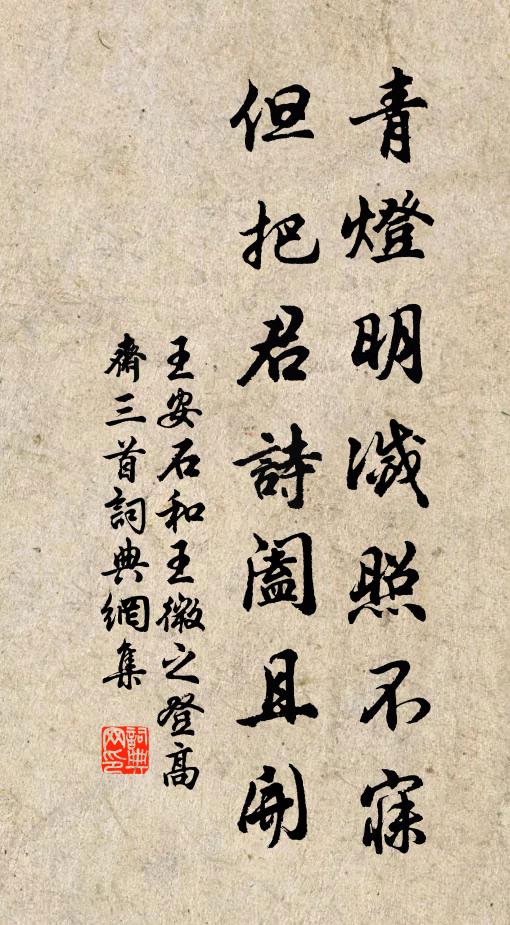 青燈明滅照不寐
但把君詩闔且開
王安石和王徽之登高
齋三首詞典網集
詞典網印